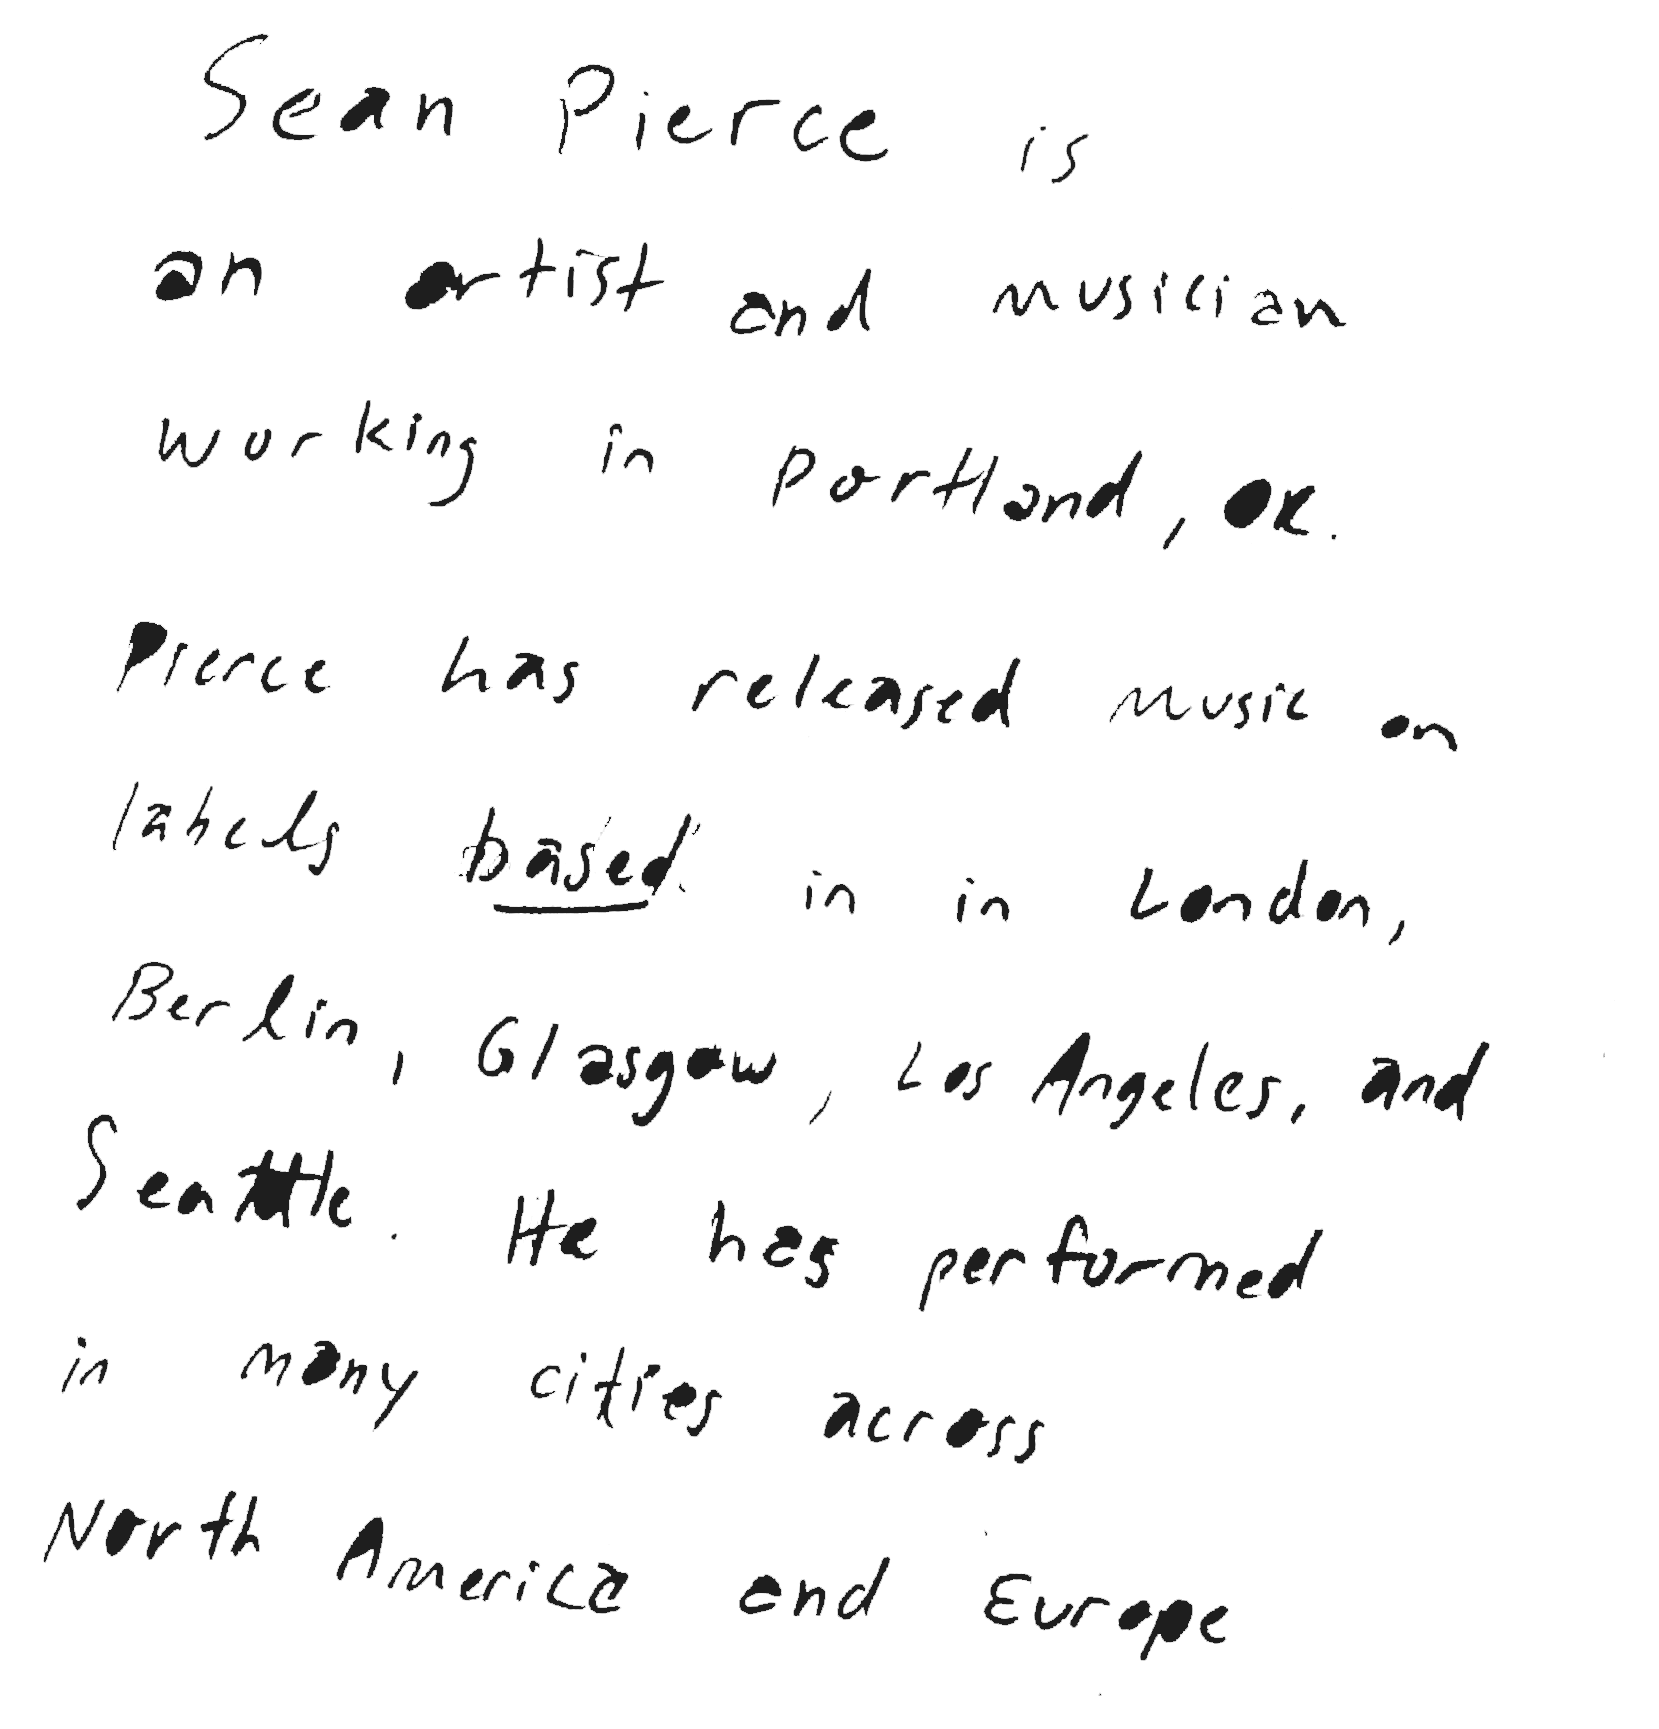 Sean Pierce is
an artist and musician
working in Portland, OR.
Pierce has released music on
labels based in in London,
Berlin, Glasgow, Los Angeles, and
Seattle. He has performed
in many cities across
North America and Europe